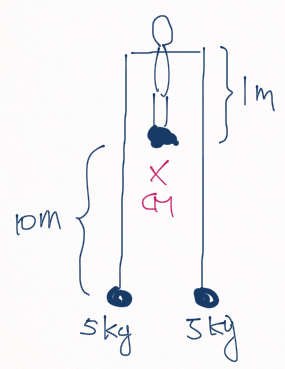 1m
X
CM
10m
5kg 5kg